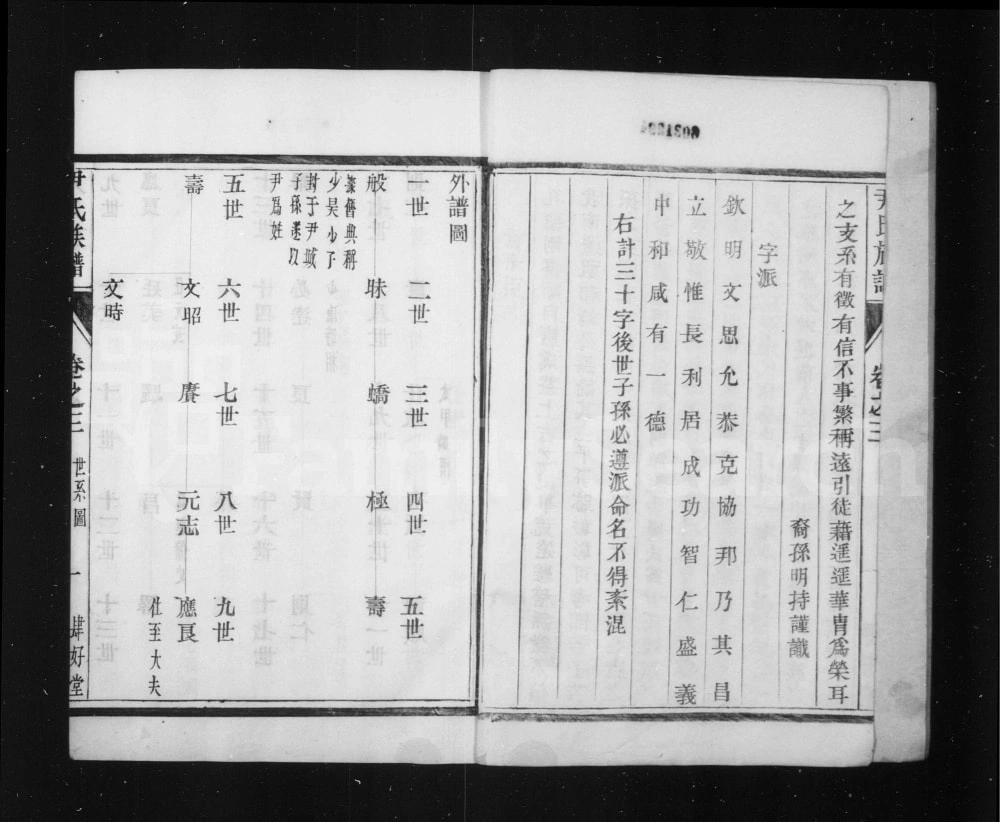 尹氏族譜
卷之三
之支系有徵有信不事繁稱遠引徒藉遥遥華胄爲榮耳
裔孫明持謹識
字派
欽明文思允恭克協邦乃其昌
立敬惟長利居成功智仁盛義
中和咸有一德
右計三十字後世子孫必遵派命名不得紊混
外譜圖
一世 二世 三世 四世 五世
般 昧 蟜 極 壽
秦舊典稱
少昊少子
封于尹城
子孫遂以
尹爲姓
五世 六世 七世 八世 九世
壽 文昭 賡 元志 應良
仕至大夫
文時
尹氏族譜
卷之三
世系圖
一
肆好堂